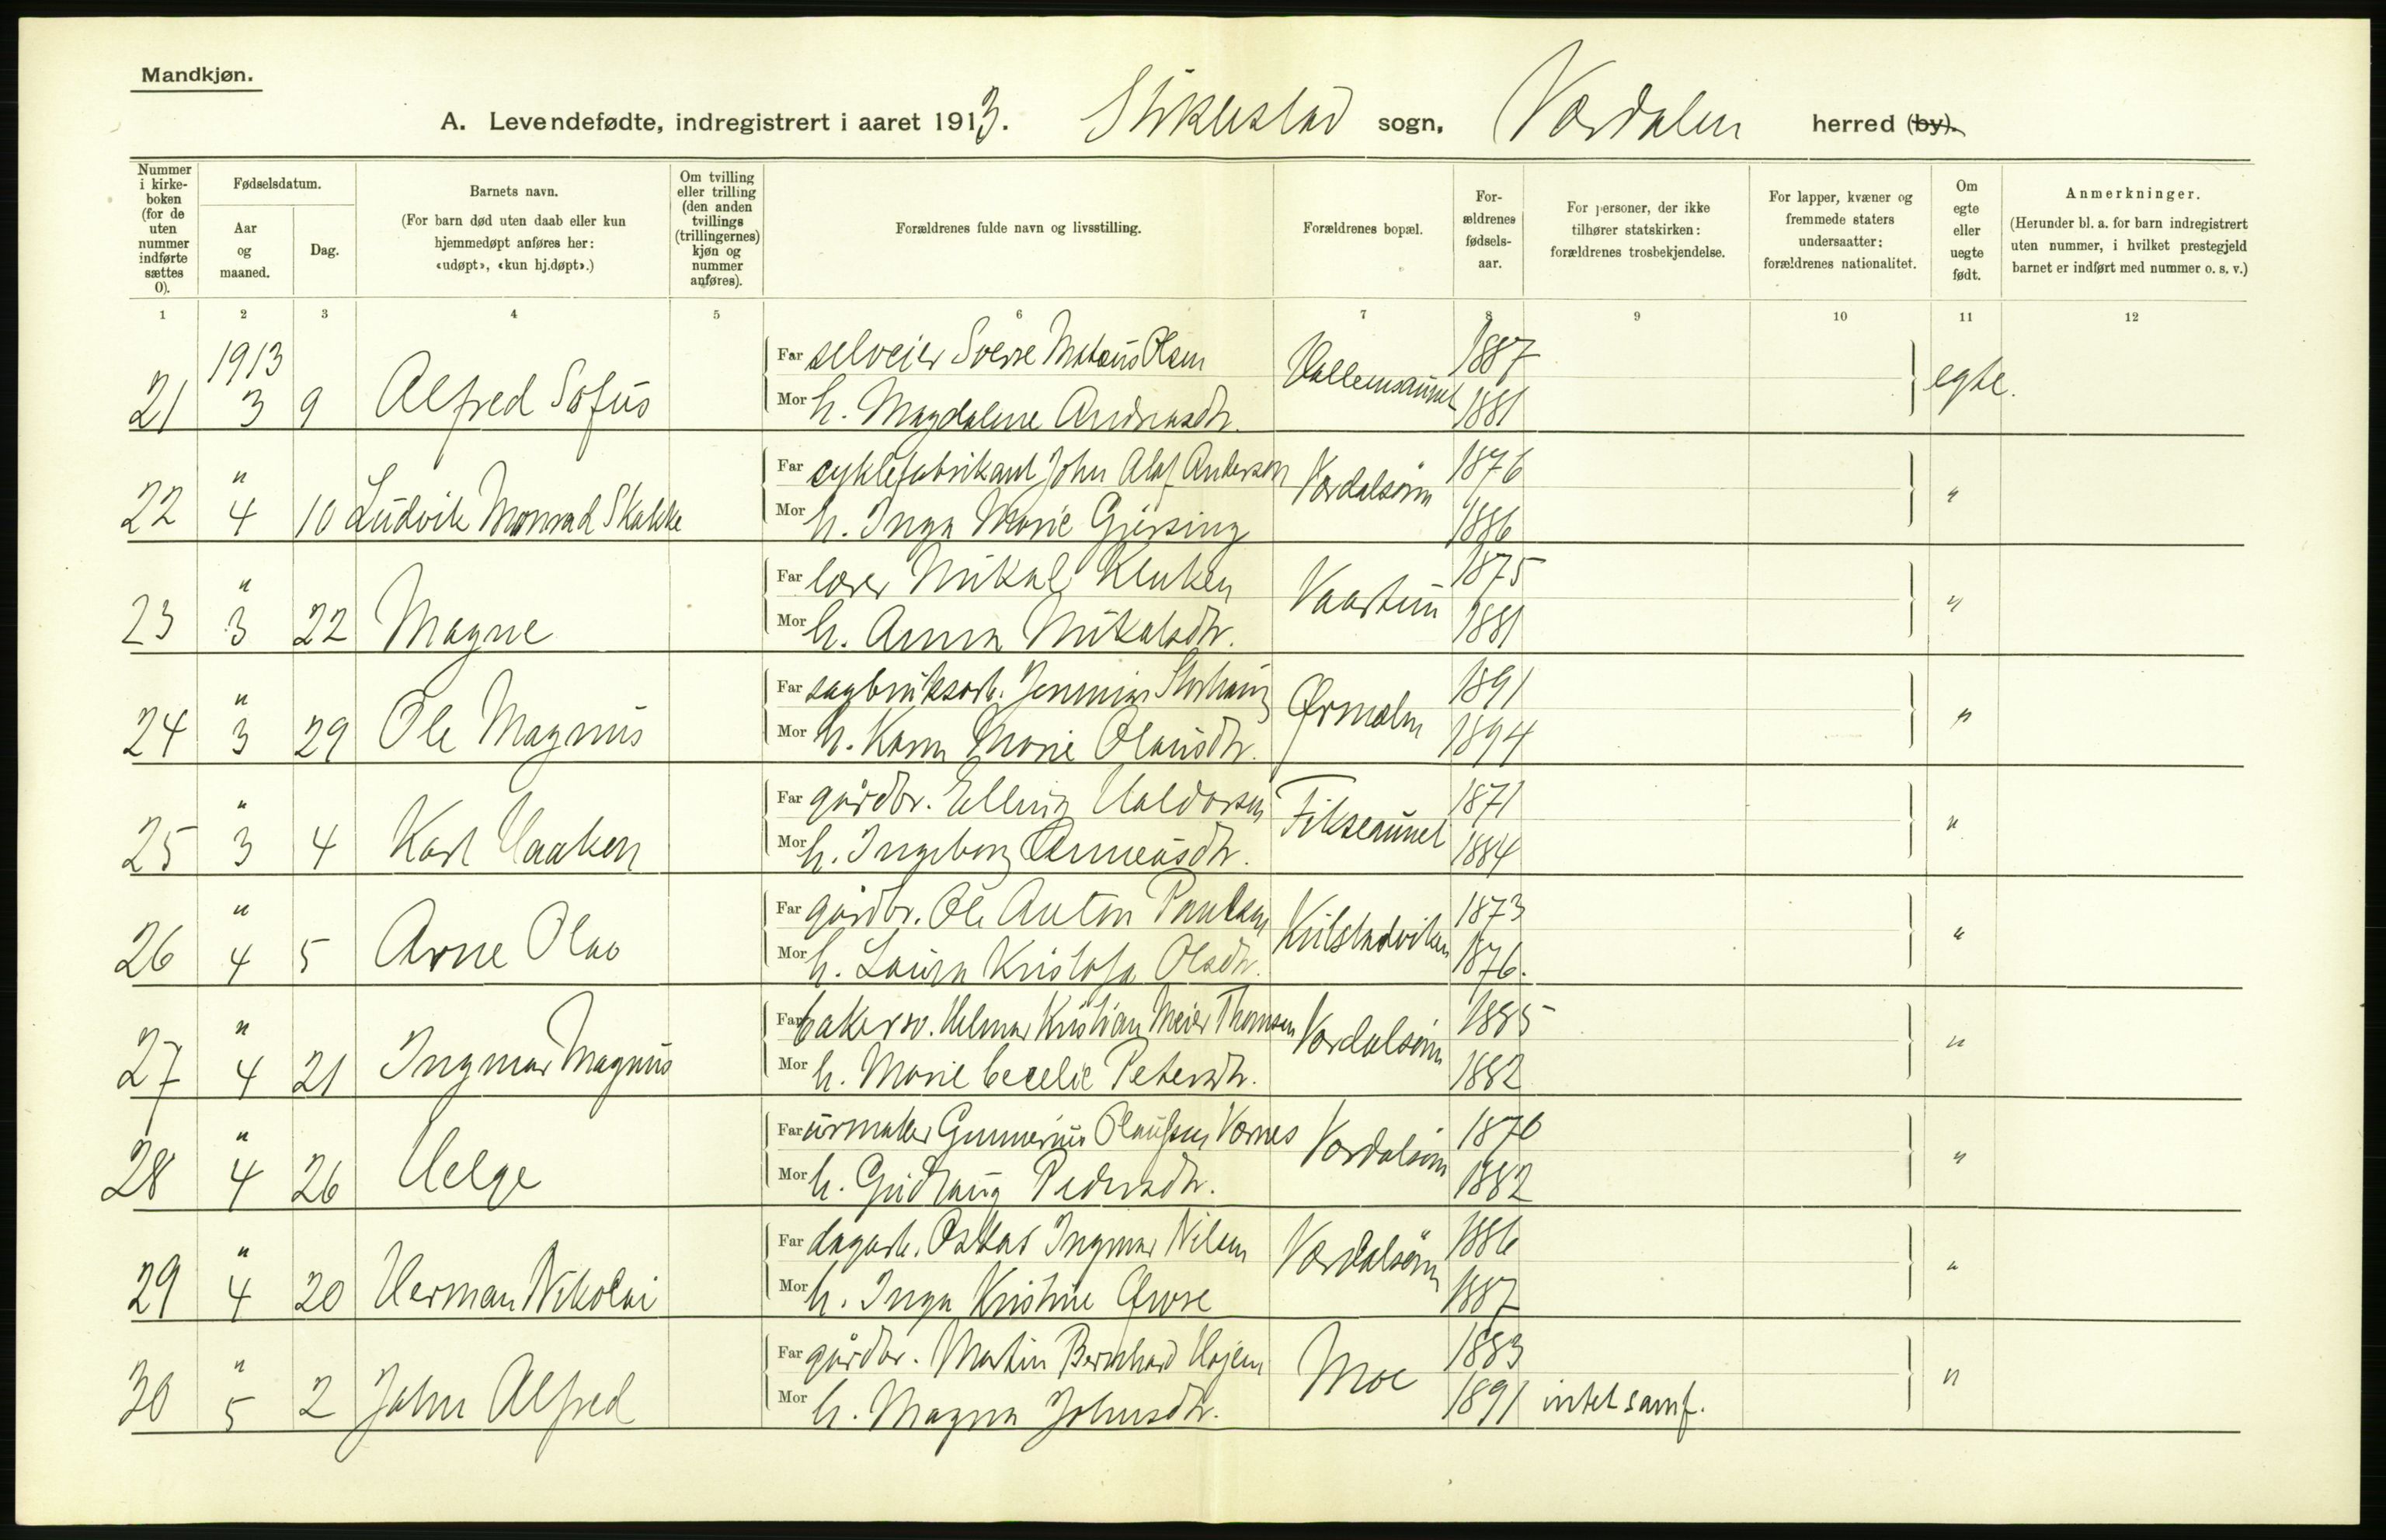 Mandkjøn.
A. Levendefødte, indregistrert i aaret 1913. Stiklestad sogn, Værdalen herred (by).
Nummer i kirkeboken (for de uten nummer indførte sættes 0).
Fødselsdatum.
Aar og maaned.
Dag.
Barnets navn.
(For barn død uten daab eller kun hjemmedøpt anføres her: «udøpt», «kun hj.døpt».)
Om tvilling eller trilling (den anden tvillings (trillingernes) kjøn og nummer anføres).
Forældrenes fulde navn og livsstilling.
Forældrenes bopæl.
Forældrenes fødselsaar.
For personer, der ikke tilhører statskirken: forældrenes trosbekjendelse.
For lapper, kvæner og fremmede staters undersaatter: forældrenes nationalitet.
Om egte eller uegte født.
Anmerkninger.
(Herunder bl. a. for barn indregistrert uten nummer, i hvilket prestegjeld barnet er indført med nummer o. s. v.)
1 2 3 4 5 6 7 8 9 10 11 12
1913
Far selveier Sverre Olsen 1887
21 3 9 Alfred Sofus Mor h. Magdalene Andreasdtr. 1881 egte.
" Far cyklefabrikant John Olaf Anderson Værdalsøren 1876
22 4 10 Ludvik Monrad Skakke Mor h. Inga Marie Gjersing 1886 "
" Far lærer Mikal Kluken Vaartun 1875
23 3 22 Magne Mor h. Anna Mikalsdtr. 1881 "
" Far sagbruksarb. Storhaug Ørmelen 1891
24 3 29 Ole Magnus Mor h. Karen Marie Olausdtr. 1894 "
" Far gårdbr. Elling Haldorsen Fikseaunet 1871
25 3 4 Karl Haaken Mor h. Ingeborg 1884 "
" Far gårdbr. Ole Anton Paulsen 1873
26 4 5 Arne Olav Mor h. Laura Kristofa Olsdtr. 1876. "
" Far bakersv. Helmer Kristian Meier Thomsen Værdalsøren 1885
27 4 21 Ingmar Magnus Mor h. Marie Cecelie Petersdtr. 1882 "
" Far urmaker Gunnerius Olaussen Værnes Værdalsøren 1876
28 4 26 Helge Mor h. Gudlaug Pedersdtr. 1882 "
" Far dagarb. Oskar Ingmar Nilsen Værdalsøren 1886
29 4 20 Herman Nikolai Mor h. Inga Kristine 1887 "
" Far gårdbr. Martin Bernhard Hojem Moe 1883
30 5 2 John Alfred Mor h. Magna Johnsdtr. 1891 intet samf. "